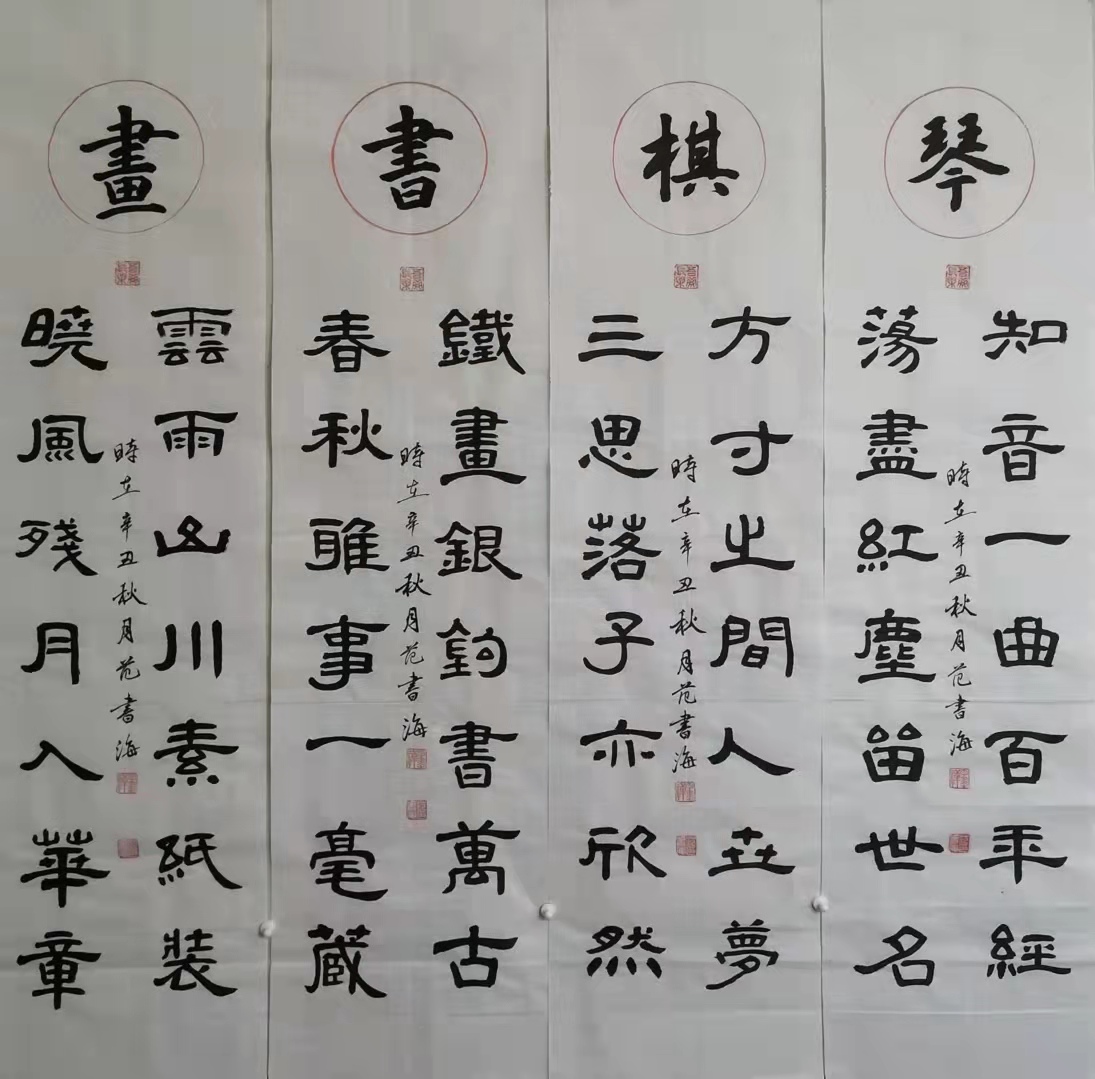 琴
知音一曲百年經
蕩盡紅塵留世名
時在辛丑秋月范書海
棋
方寸之間人世夢
三思落子亦欣然
時在辛丑秋月范書海
書
鐵畫銀鈎書萬古
春秋雅事一毫藏
時在辛丑秋月范書海
畫
雲雨山川素紙裝
曉風殘月入華章
時在辛丑秋月范書海